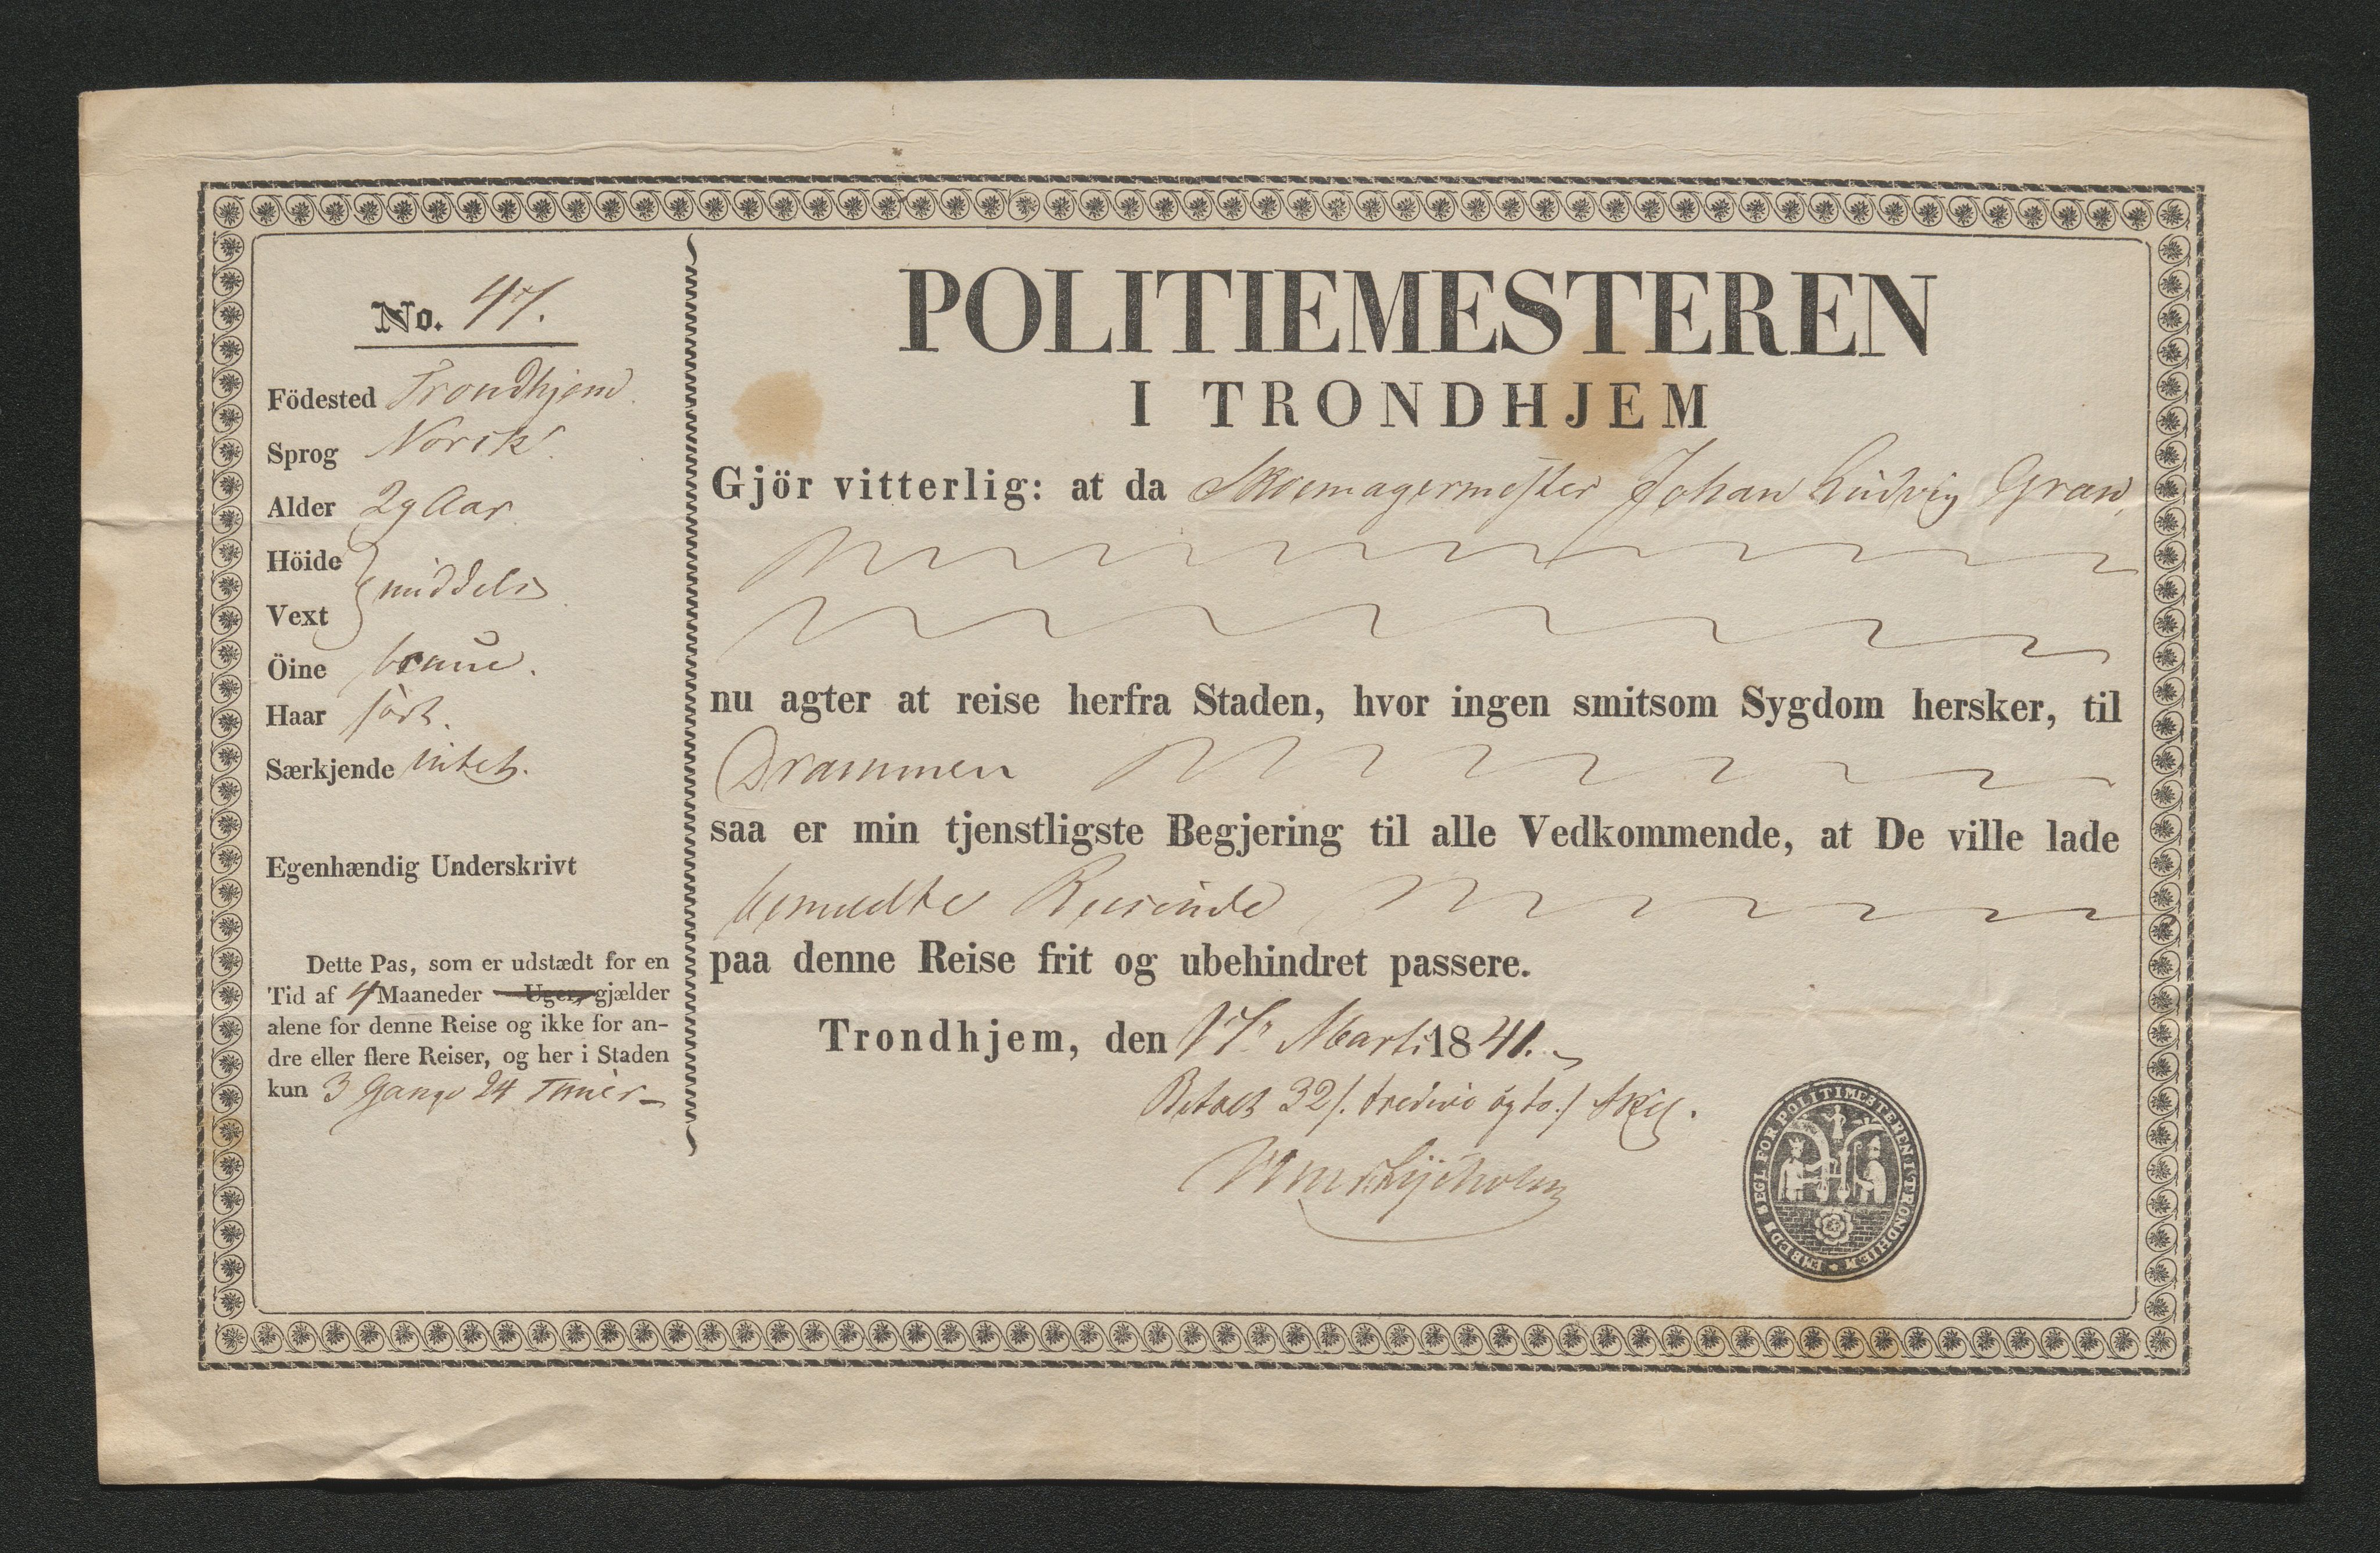 No. 47.
Födested Trondhjem.
Sprog Norsk.
Alder 29 Aar
Höide
middels
Vext
Öine brune.
Haar sort.
Særkjende intet.
Egenhændig Underskrivt
Dette Pas, som er udstædt for en
Tid af 4 Maaneder Uger, gjælder
alene for denne Reise og ikke for an-
dre eller flere Reiser, og her i Staden
kun 3 Gange 24 Timer
POLITIEMESTEREN
I TRONDHJEM
Gjör vitterlig: at da Skoemagermester Johan Ludvig Gran,
nu agter at reise herfra Staden, hvor ingen smitsom Sygdom hersker, til
Drammen
saa er min tjenstligste Begjering til alle Vedkommende, at De ville lade
bemeldte Reisende
paa denne Reise frit og ubehindret passere.
Trondhjem, den 17 Marts 1841.
Betalt 32 /. tredive og to./ Skil.
EMBEDS SEGL FOR POLITIMESTEREN I TRONDHIEM